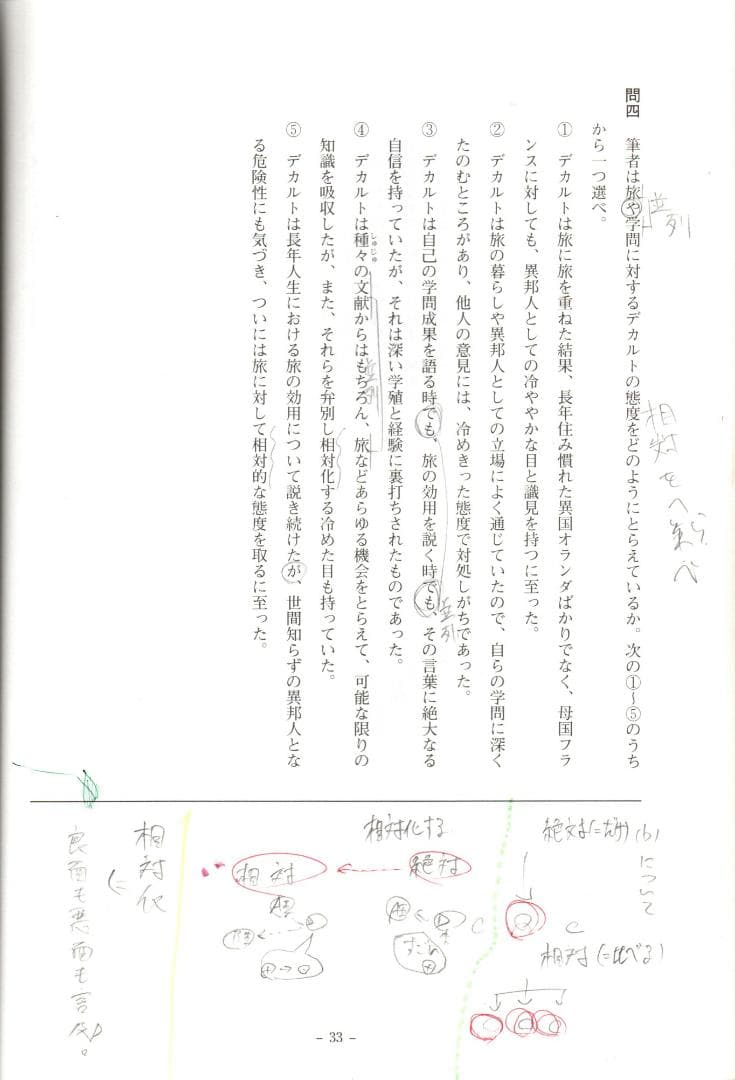 問四 筆者は旅や学問に対するデカルトの態度をどのようにとらえているか。次の①〜⑤のうち
から一つ選べ。
① デカルトは旅に旅を重ねた結果、長年住み慣れた異国オランダばかりでなく、母国フラ
ンスに対しても、異邦人としての冷ややかな目と識見を持つに至った。
② デカルトは旅の暮らしや異邦人としての立場によく通じていたので、自らの学問に深く
たのむところがあり、他人の意見には、冷めきった態度で対処しがちであった。
③ デカルトは自己の学問成果を語る時でも、旅の効用を説く時でも、その言葉に絶大なる
自信を持っていたが、それは深い学殖と経験に裏打ちされたものであった。
④ デカルトは種々の文献からはもちろん、旅などあらゆる機会をとらえて、可能な限りの
しゅじゅ
知識を吸収したが、また、それらを弁別し相対化する冷めた目も持っていた。
⑤ デカルトは長年人生における旅の効用について説き続けたが、世間知らずの異邦人とな
る危険性にも気づき、ついには旅に対して相対的な態度を取るに至った。
並列
並列
並列
(b)について
絶対(=だけ)
相対(=比べる)
相対化する
絶対
相対
相対化
良面も悪面も言及。
- 33 -